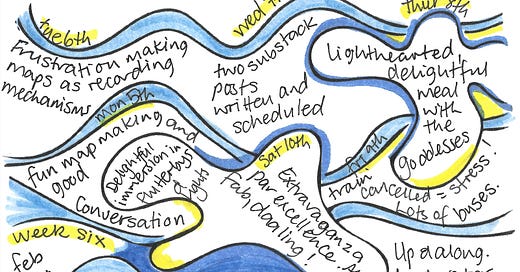 tue 6th
Frustration making
maps as recording
mechanisms
wed
two substack
posts
written and
scheduled
thur 8th
Lighthearted,
delightful
meal
with
the
goddesses
mon 5th
fun map making and
good
conversation
Delightful
immersion in
of
lights
sat 10th
Extravaganza
par excellence.
Fab, daaling!
fri 9th
train
cancelled = stress.
Lots of buses.
week six
feb
Up dalong.